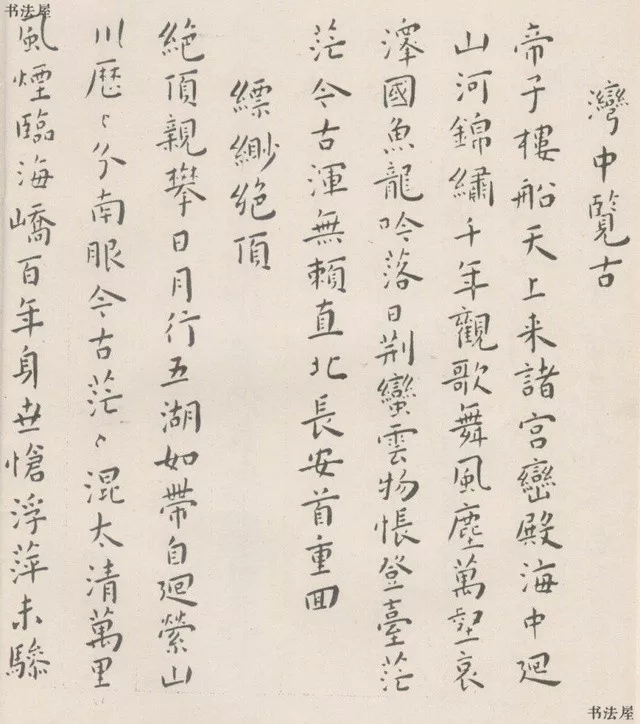 书法屋
灣中覽古
帝子樓船天上来諸宫巒殿海中迴
山河錦繡千年觀歌舞風塵萬壑哀
澤國魚龍吟落日荆蠻雲物悵登臺茫
茫今古渾無賴直北長安首重回
縹緲絶頂
絶頂親攀日月行五湖如帶自迴縈山
川歷〻分南眼今古茫〻混太清萬里
風煙臨海嶠百年身世愴浮萍未驂
书法屋